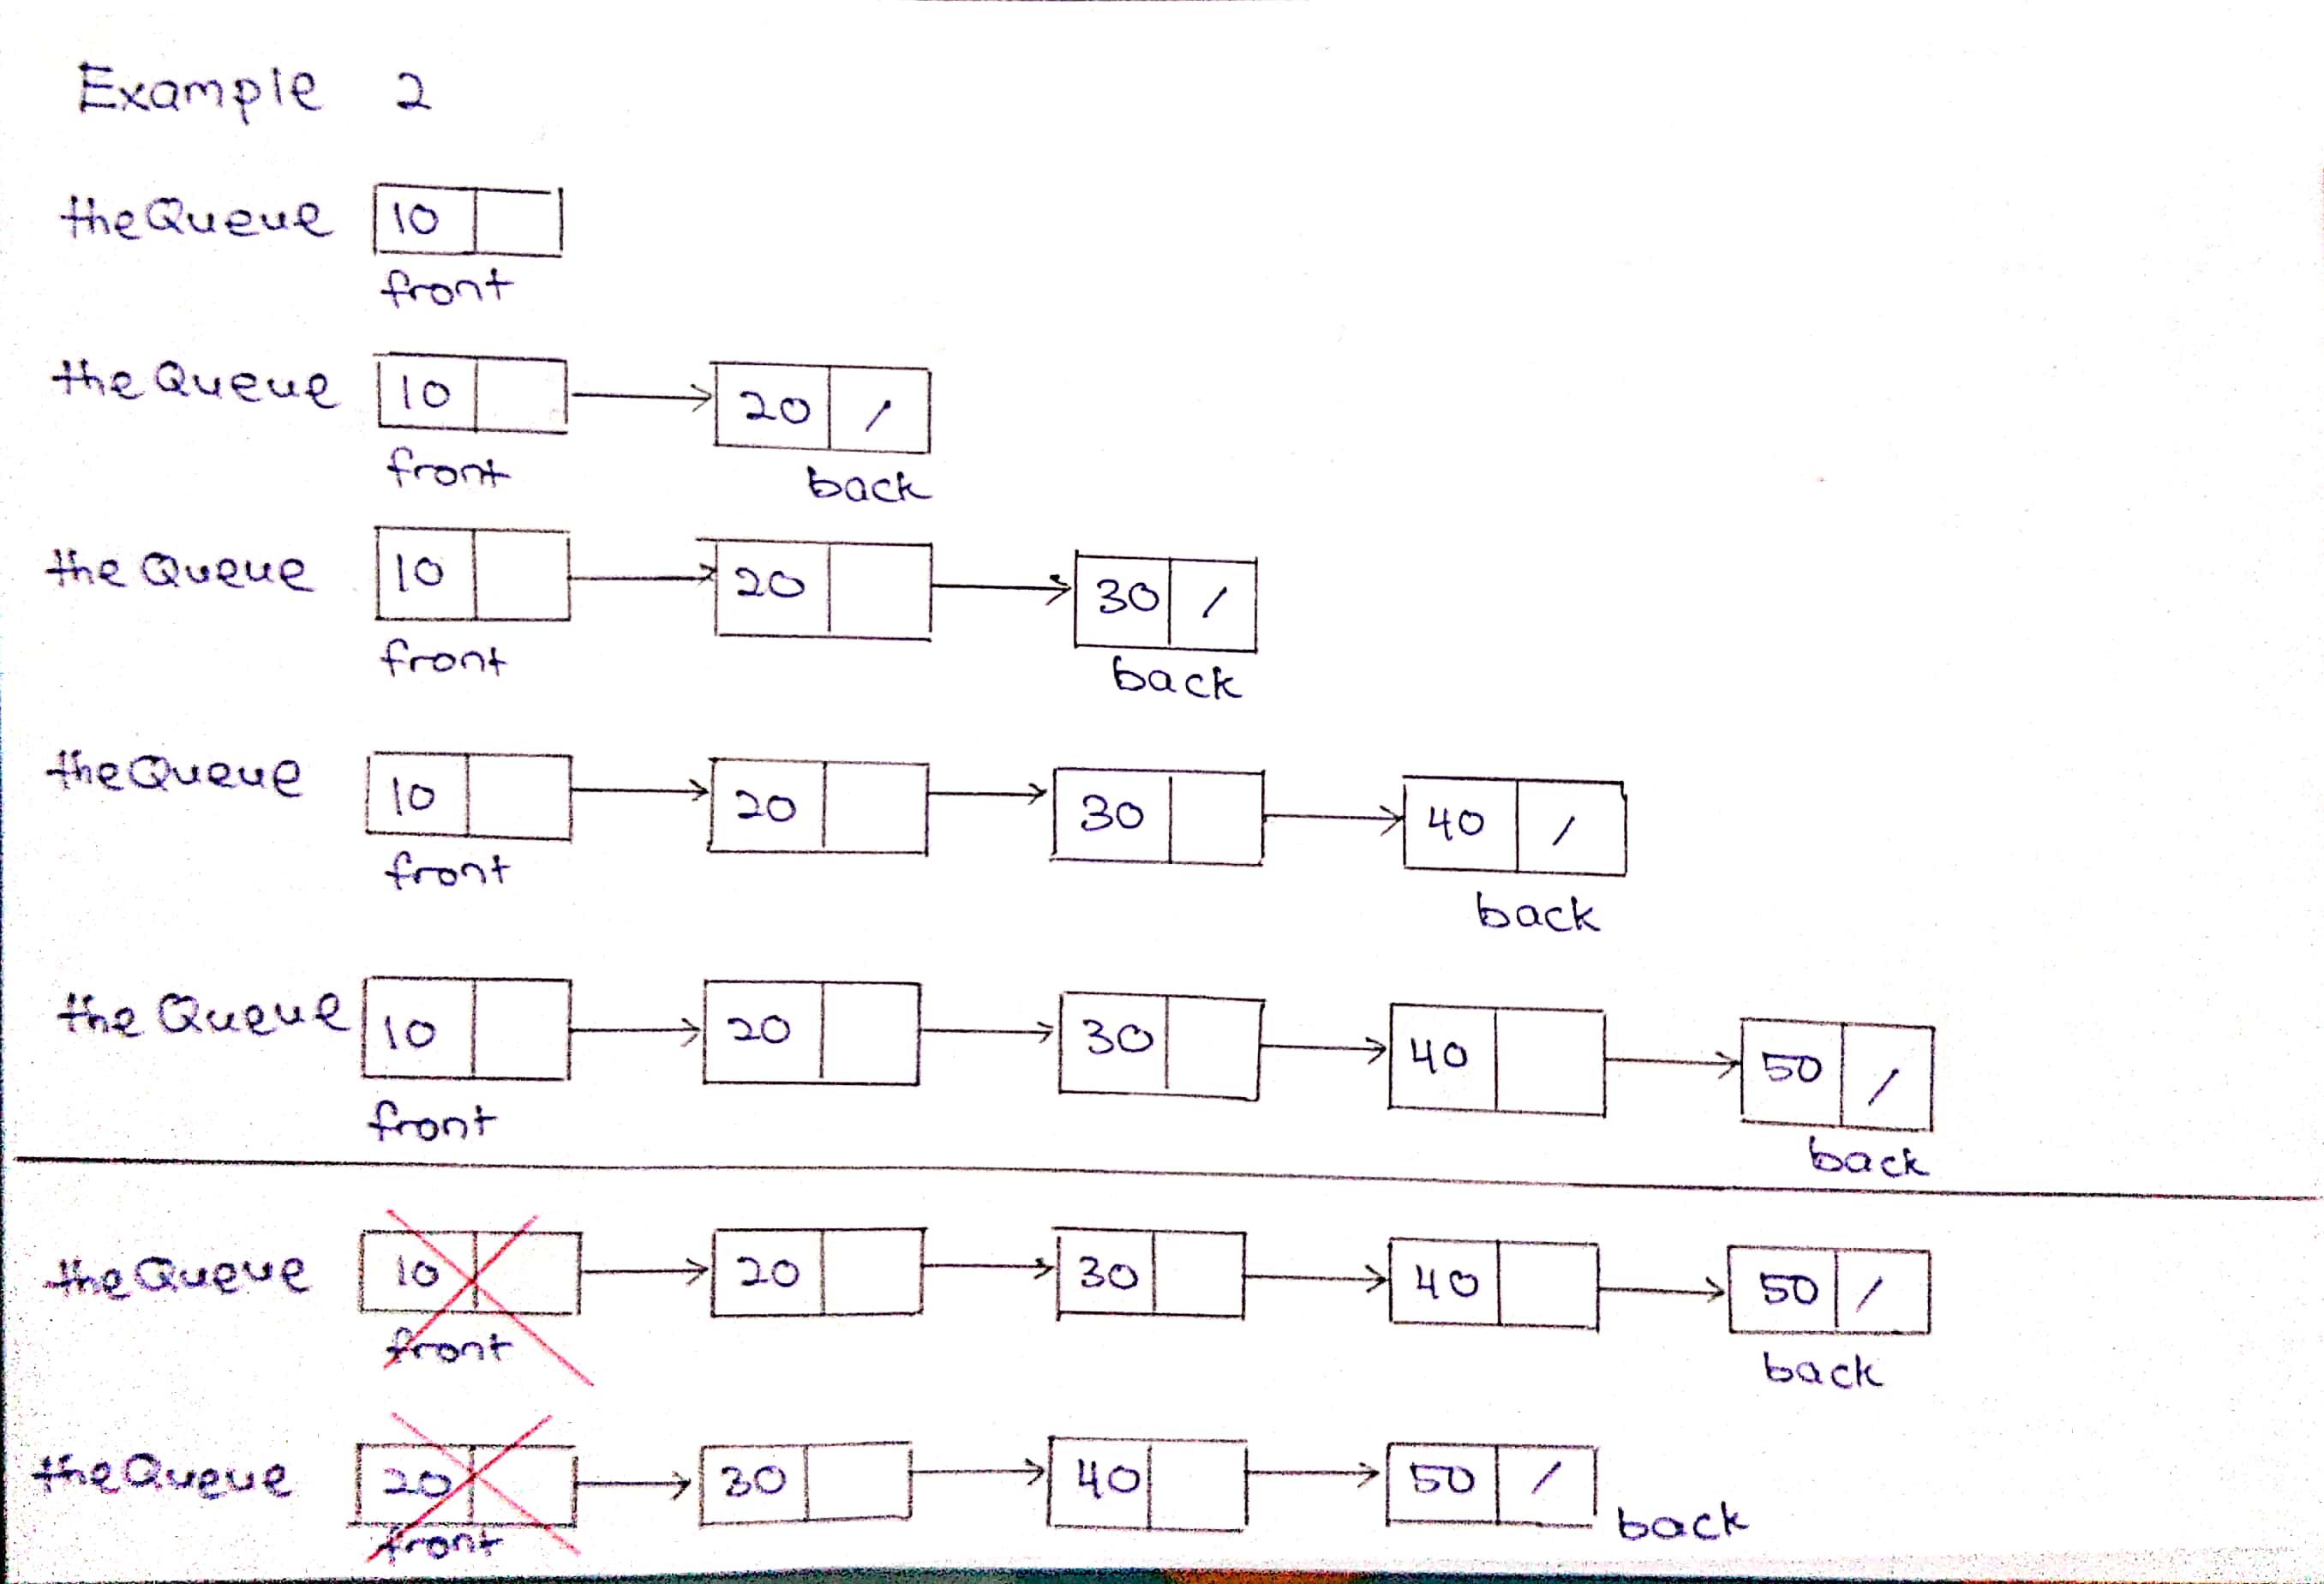 Example 2
theQueue 10
front
the Queue 10 20 /
front back
the Queue 10 20 30 /
front back
theQueue 10 20 30 40 /
front back
the Queue 10 20 30 40 50 /
front back
theQueue 10 20 30 40 50 /
front back
theQueue 20 30 40 50 /
front back